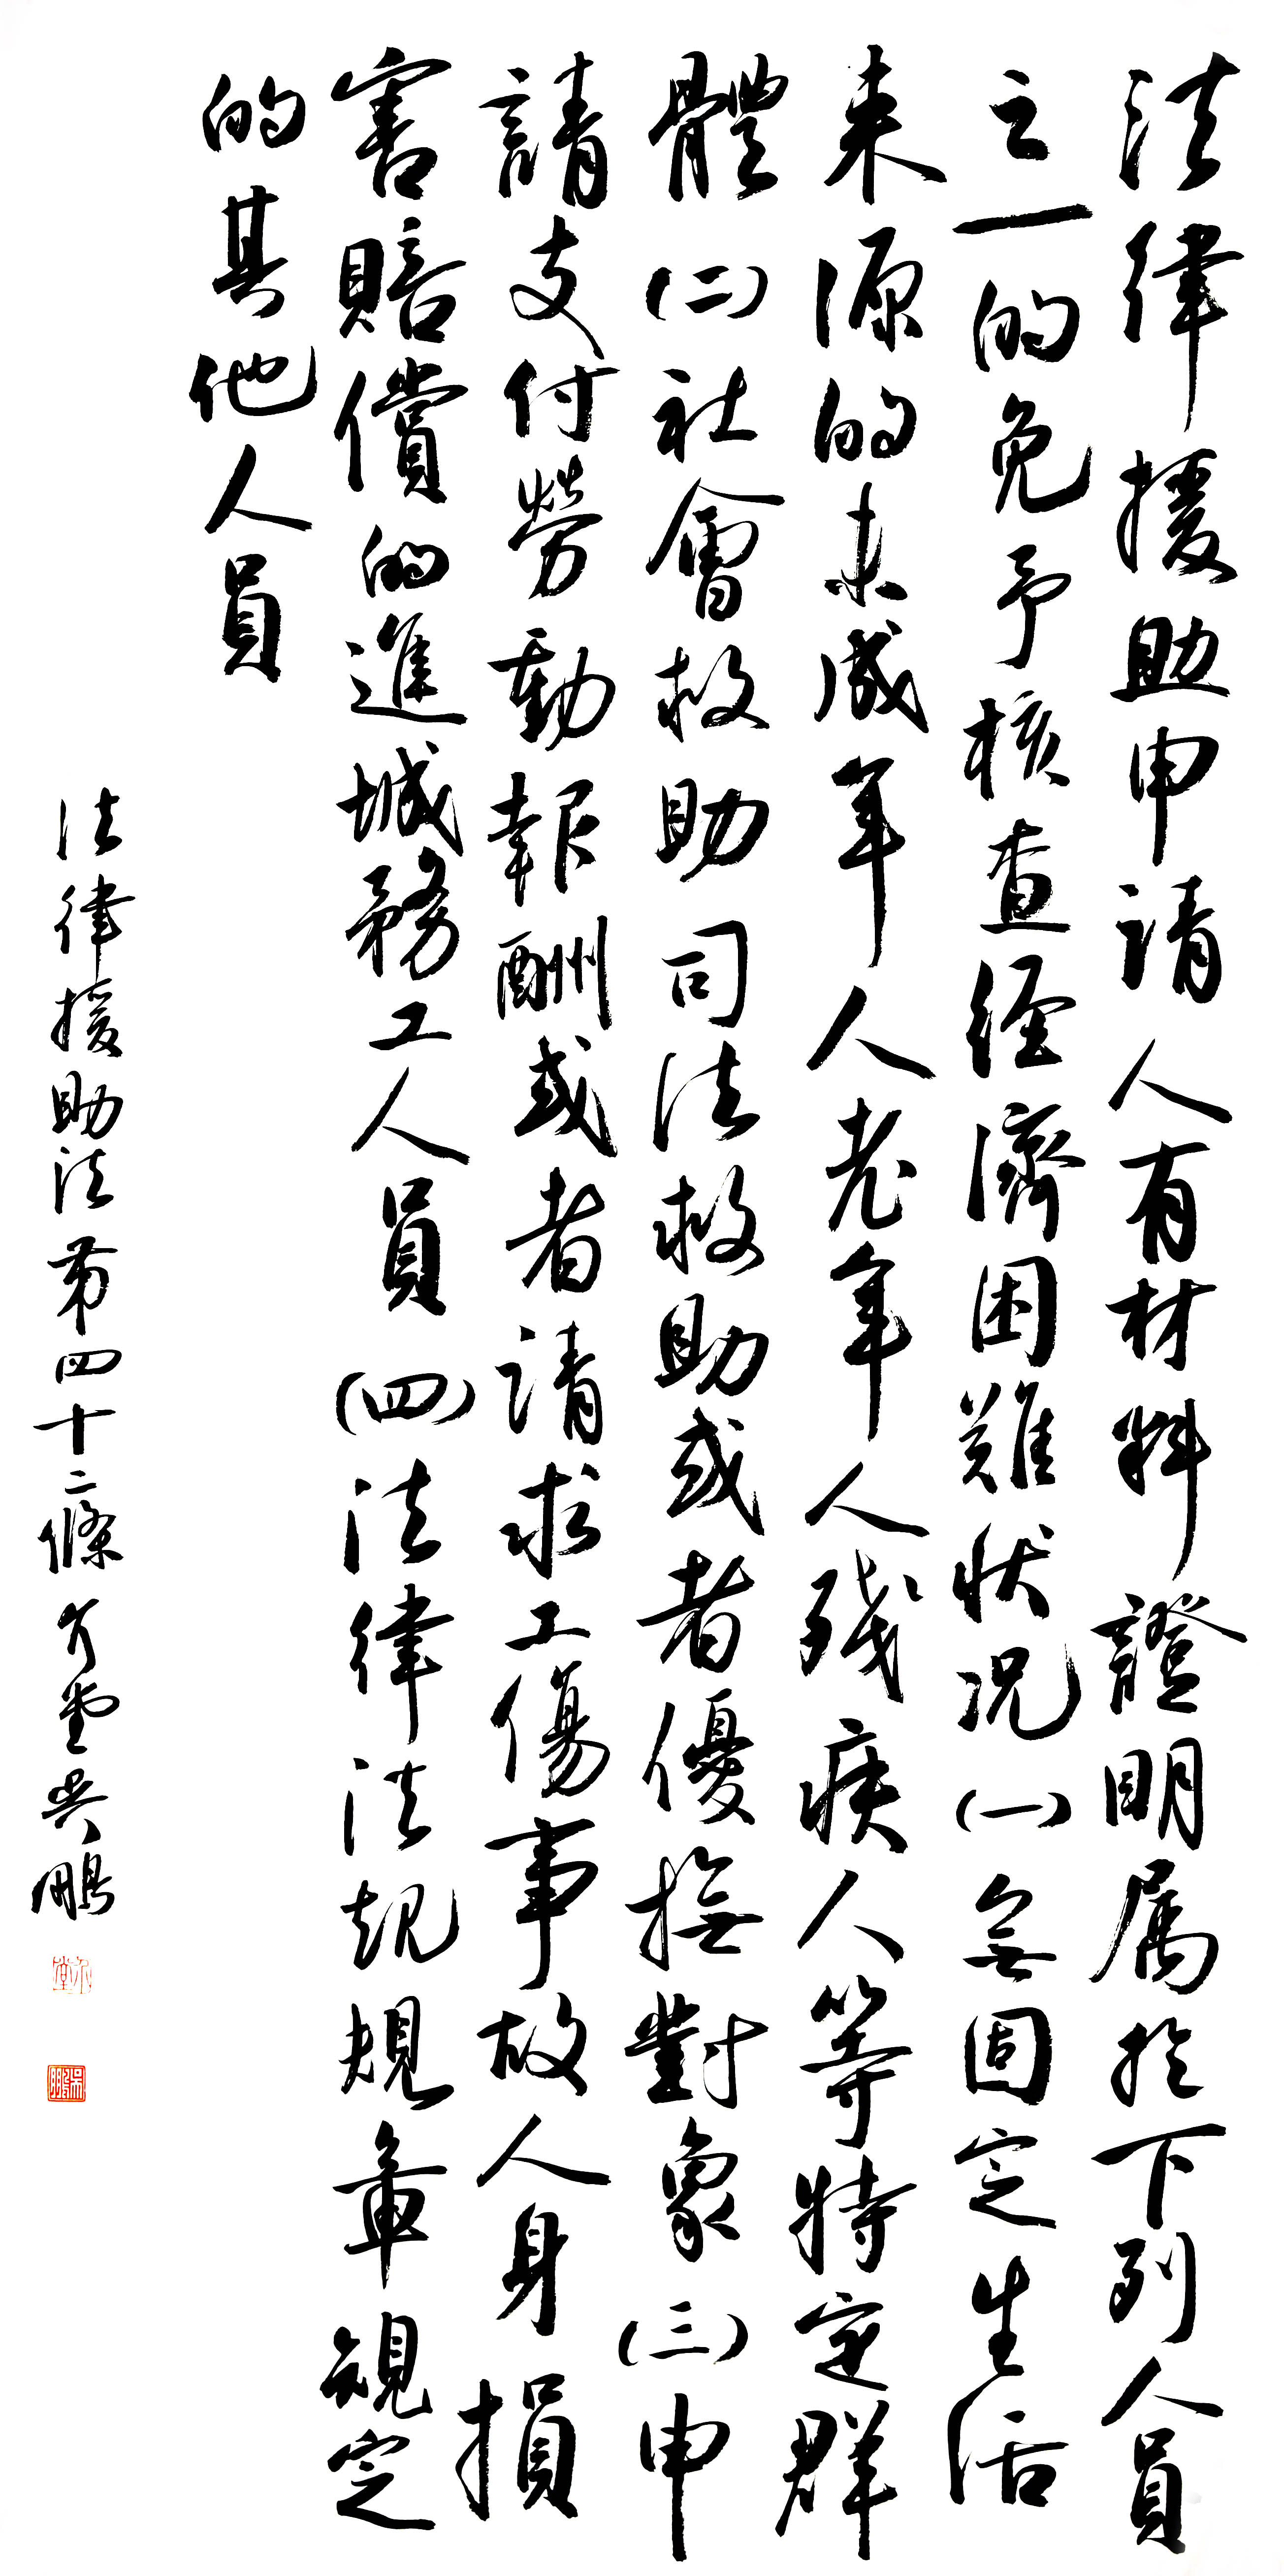 法律援助申請人有材料證明属於下列人員
之一的免予核查經濟困難状况(一)無固定生活
来源的未成年人老年人残疾人等特定群
體(二)社會救助司法救助或者優撫對象(三)申
請支付勞動報酬或者請求工傷事故人身損
害賠償的進城務工人員(四)法律法規規章規定
的其他人員
法律援助法第四十二條 堂吳鵬
吳鵬